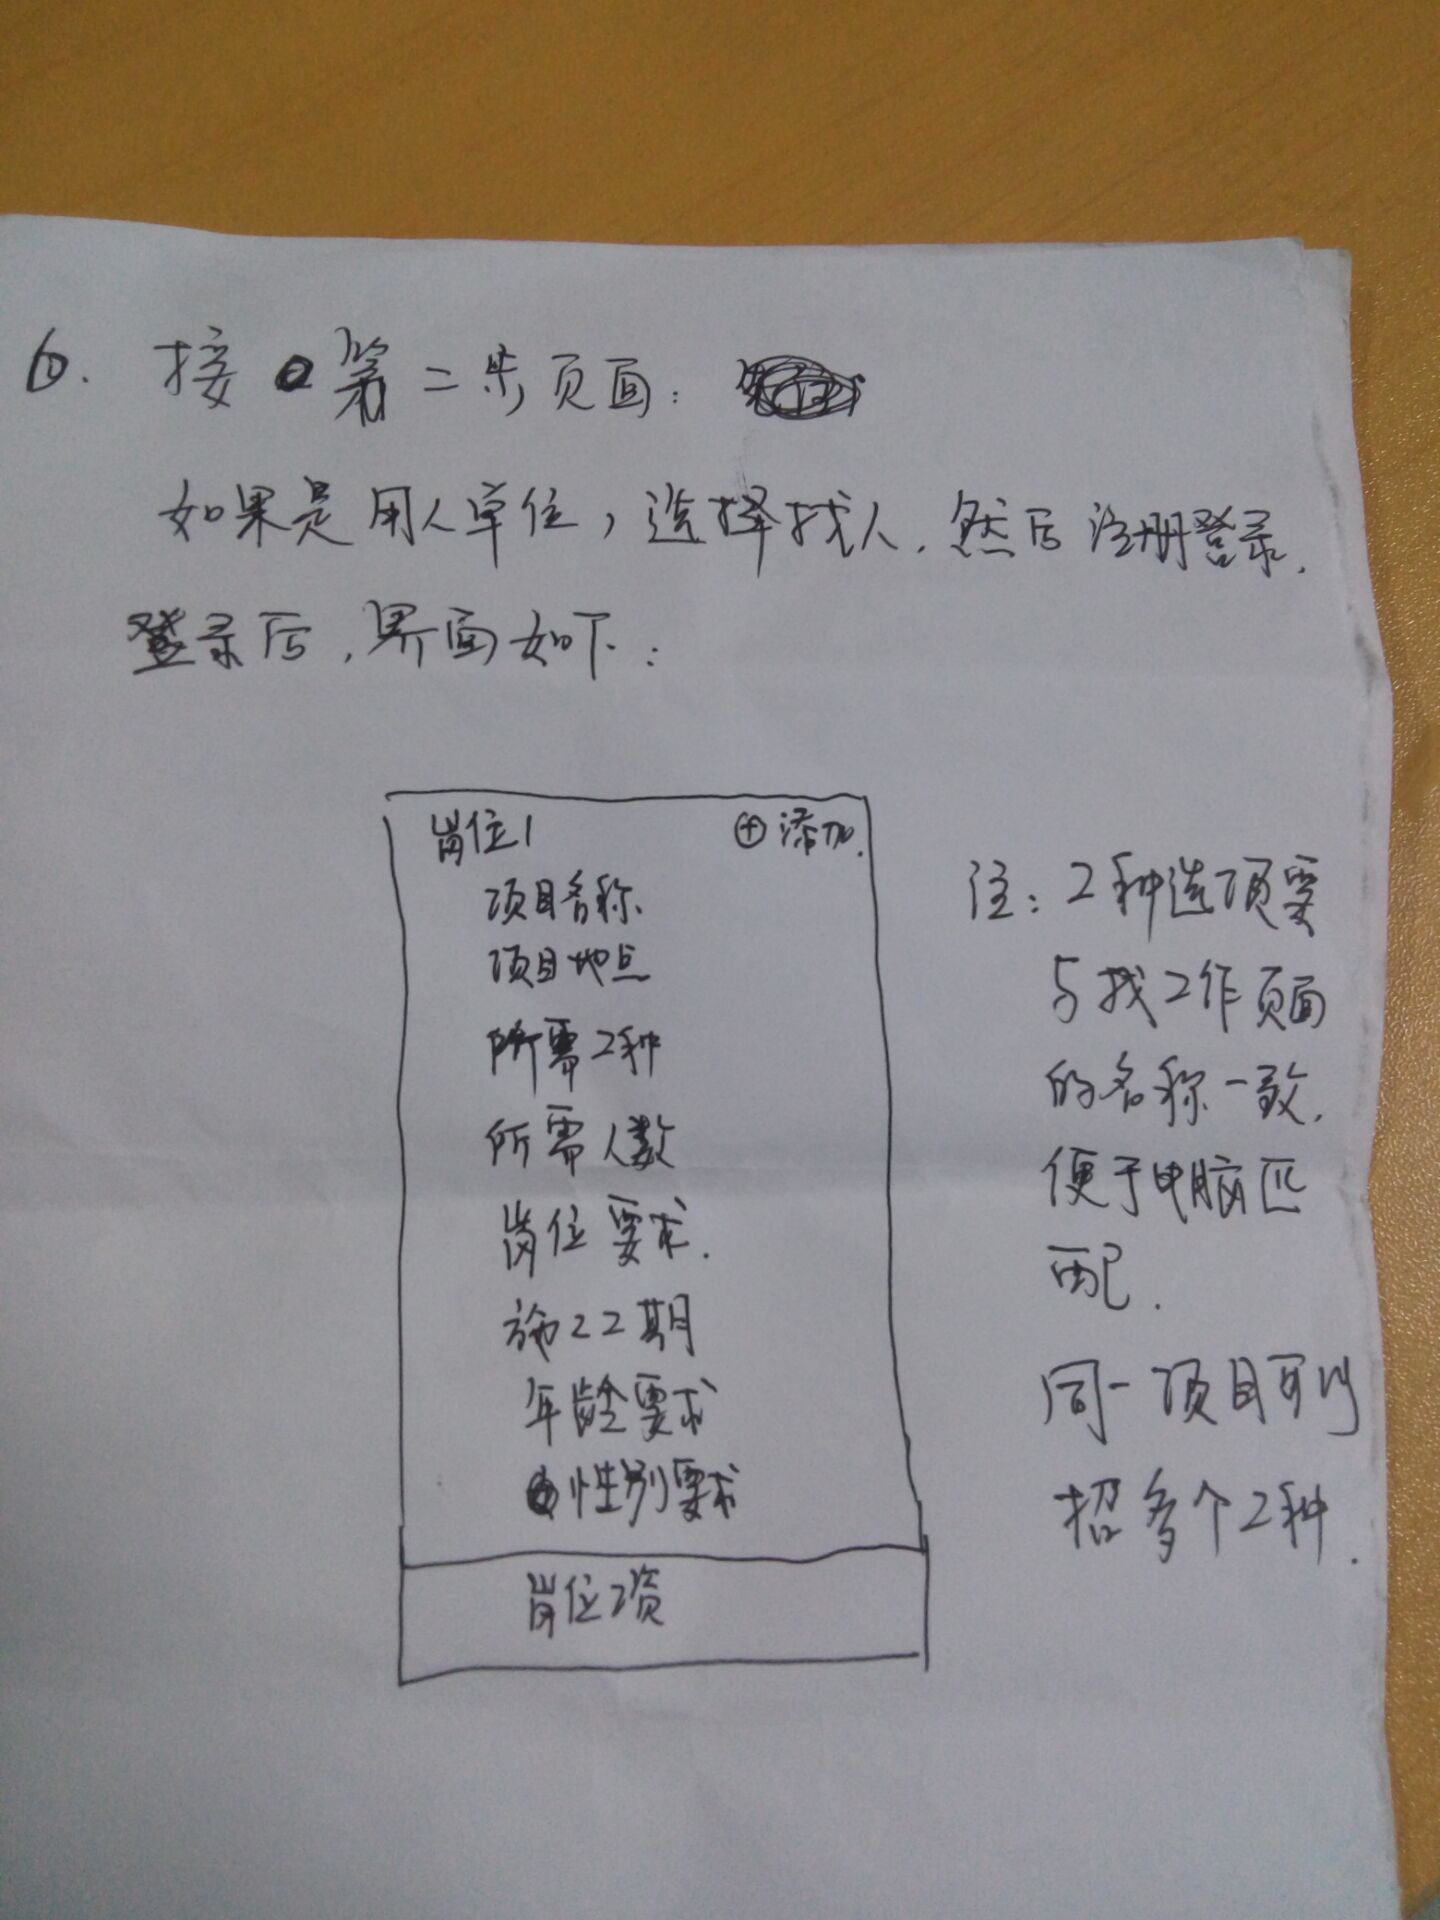 6. 接第二步页面：
如果是用人单位，选择找人，然后注册登录，
登录后，界面如下：
岗位1 ⊕添加
项目名称
项目地点
所需工种
所需人数
岗位要求
施工工期
年龄要求
性别要求
岗位工资
注：工种选项要
与找工作页面
的名称一致，
便于电脑匹
配.
同一项目可以
招多个工种.